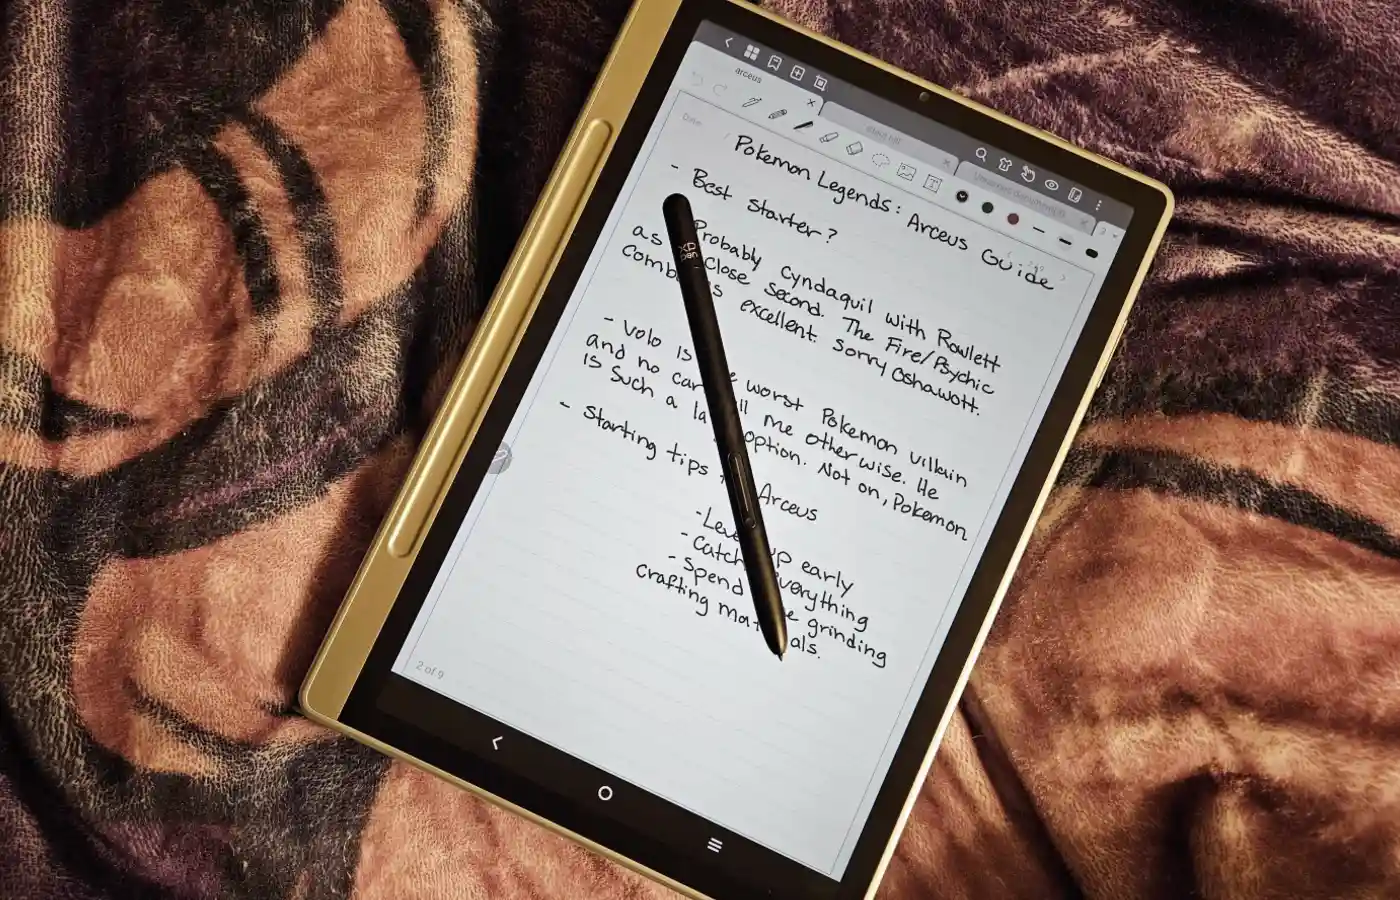 arceus
Date
Pokemon Legends: Arceus Guide
- Best starter?
Probably Cyndaquil with Rowlett
as close second. The Fire/Psychic
comb is excellent. Sorry Oshawott.
- Volo is worst Pokemon villain
and no can me otherwise. He
is such a la option. Not on, Pokemon
- Starting tips Arceus
- Level up early
- Catch everything
- Spend grinding
Crafting mat als.
2 of 9
xp
pen